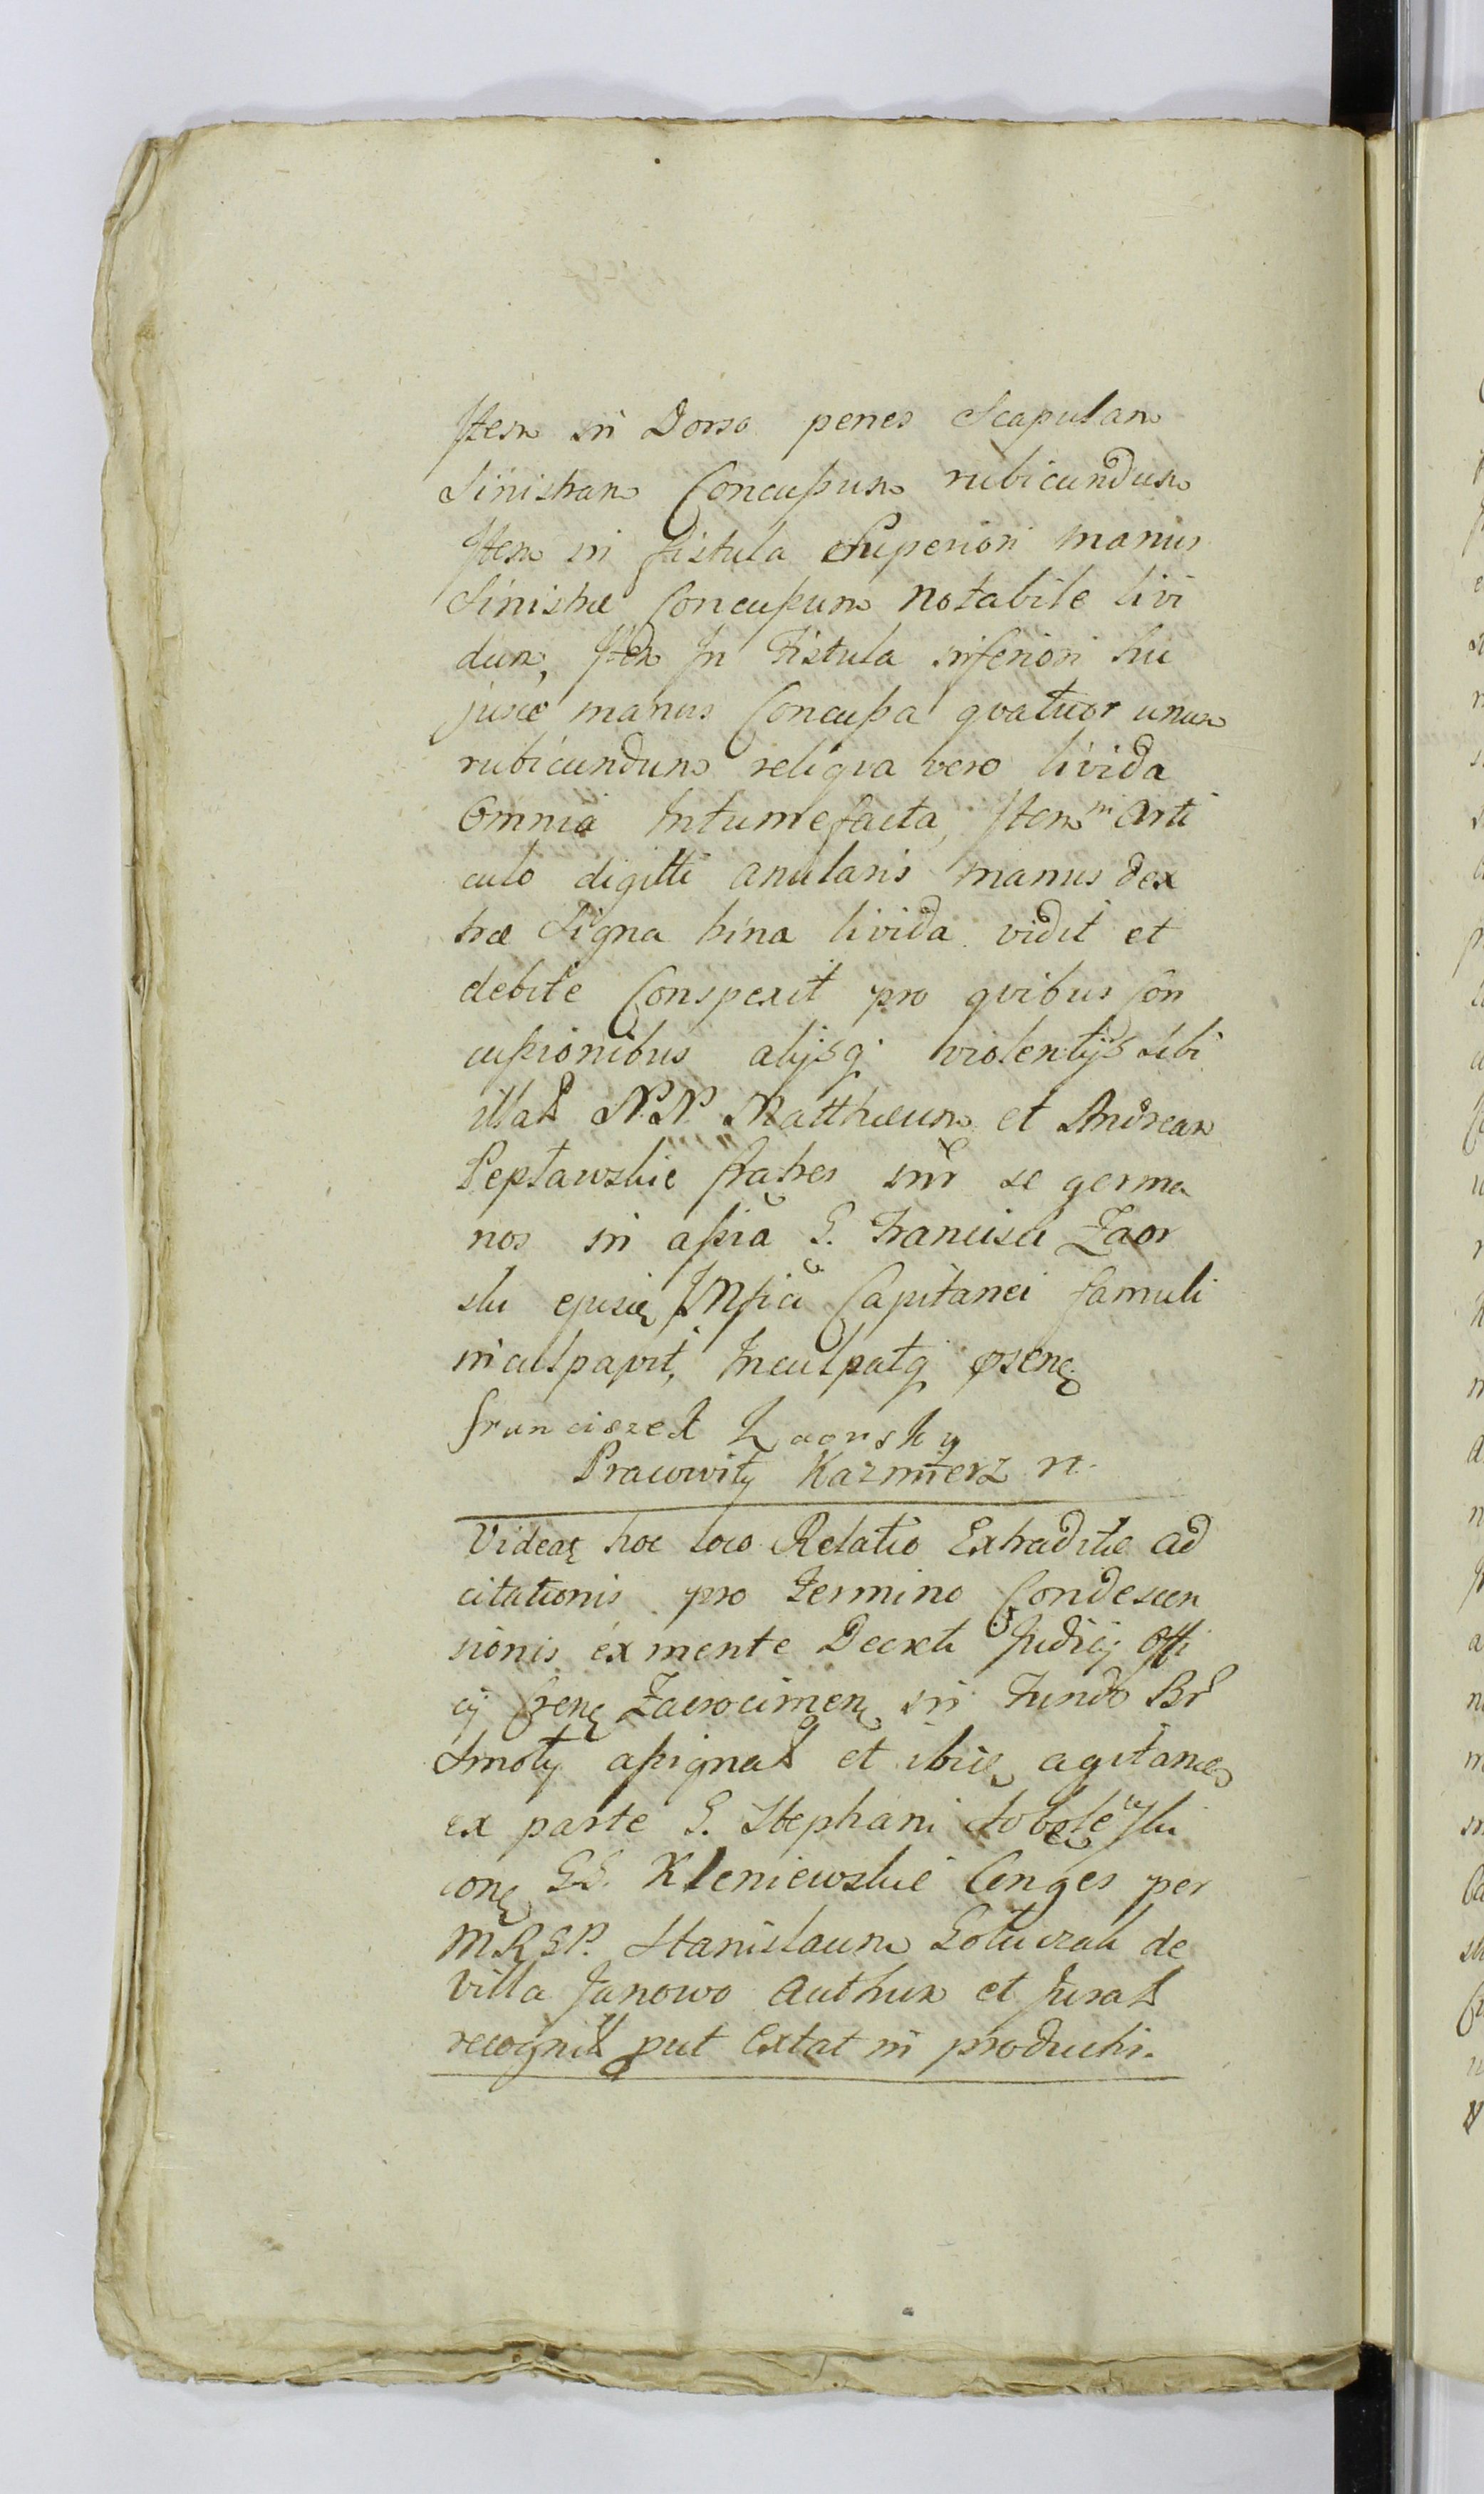 Item in Dorso penes Scapulam
Sinistram Concussum rubicundum
Item in fistula Superiori manus
Sinistræ Concussum Notabile livi
dum, Item In Fistula inferiori hu
jusce manus Concussa qvatuor unum
rubicundum reliqva vero livida
Omnia Intumefacta, Item in Arti
culo digitti anularis manus dex
træ Signa bina livida vidit et
debite Conspexit pro qvibus Con
cussionibus alijsq violentijs sibi
illat NN Matthæum et Andream
Pepławskie fratres inr se germa
nos in assia G. Francisci Zaor
ski ejusq Capitanei famuli
inculpavit, Inculpatq
franciszek Zaorsky
Pracowity Kazmierz n.
Videat hoc loco Relatio Extraditæ ad
citationis pro Termino Condescen
sionis ex mente Decreti Judicij Offi
cij Zacrocimen in Fundo Br
Smoły assignat et ibid agitan
ex parte G. Stephani
con GG. Kleniewskie Conges per
MRGP. Stanislaum Gołuczak de
Villa Janowo Authum et Jurat
recognit put Extat in productis.